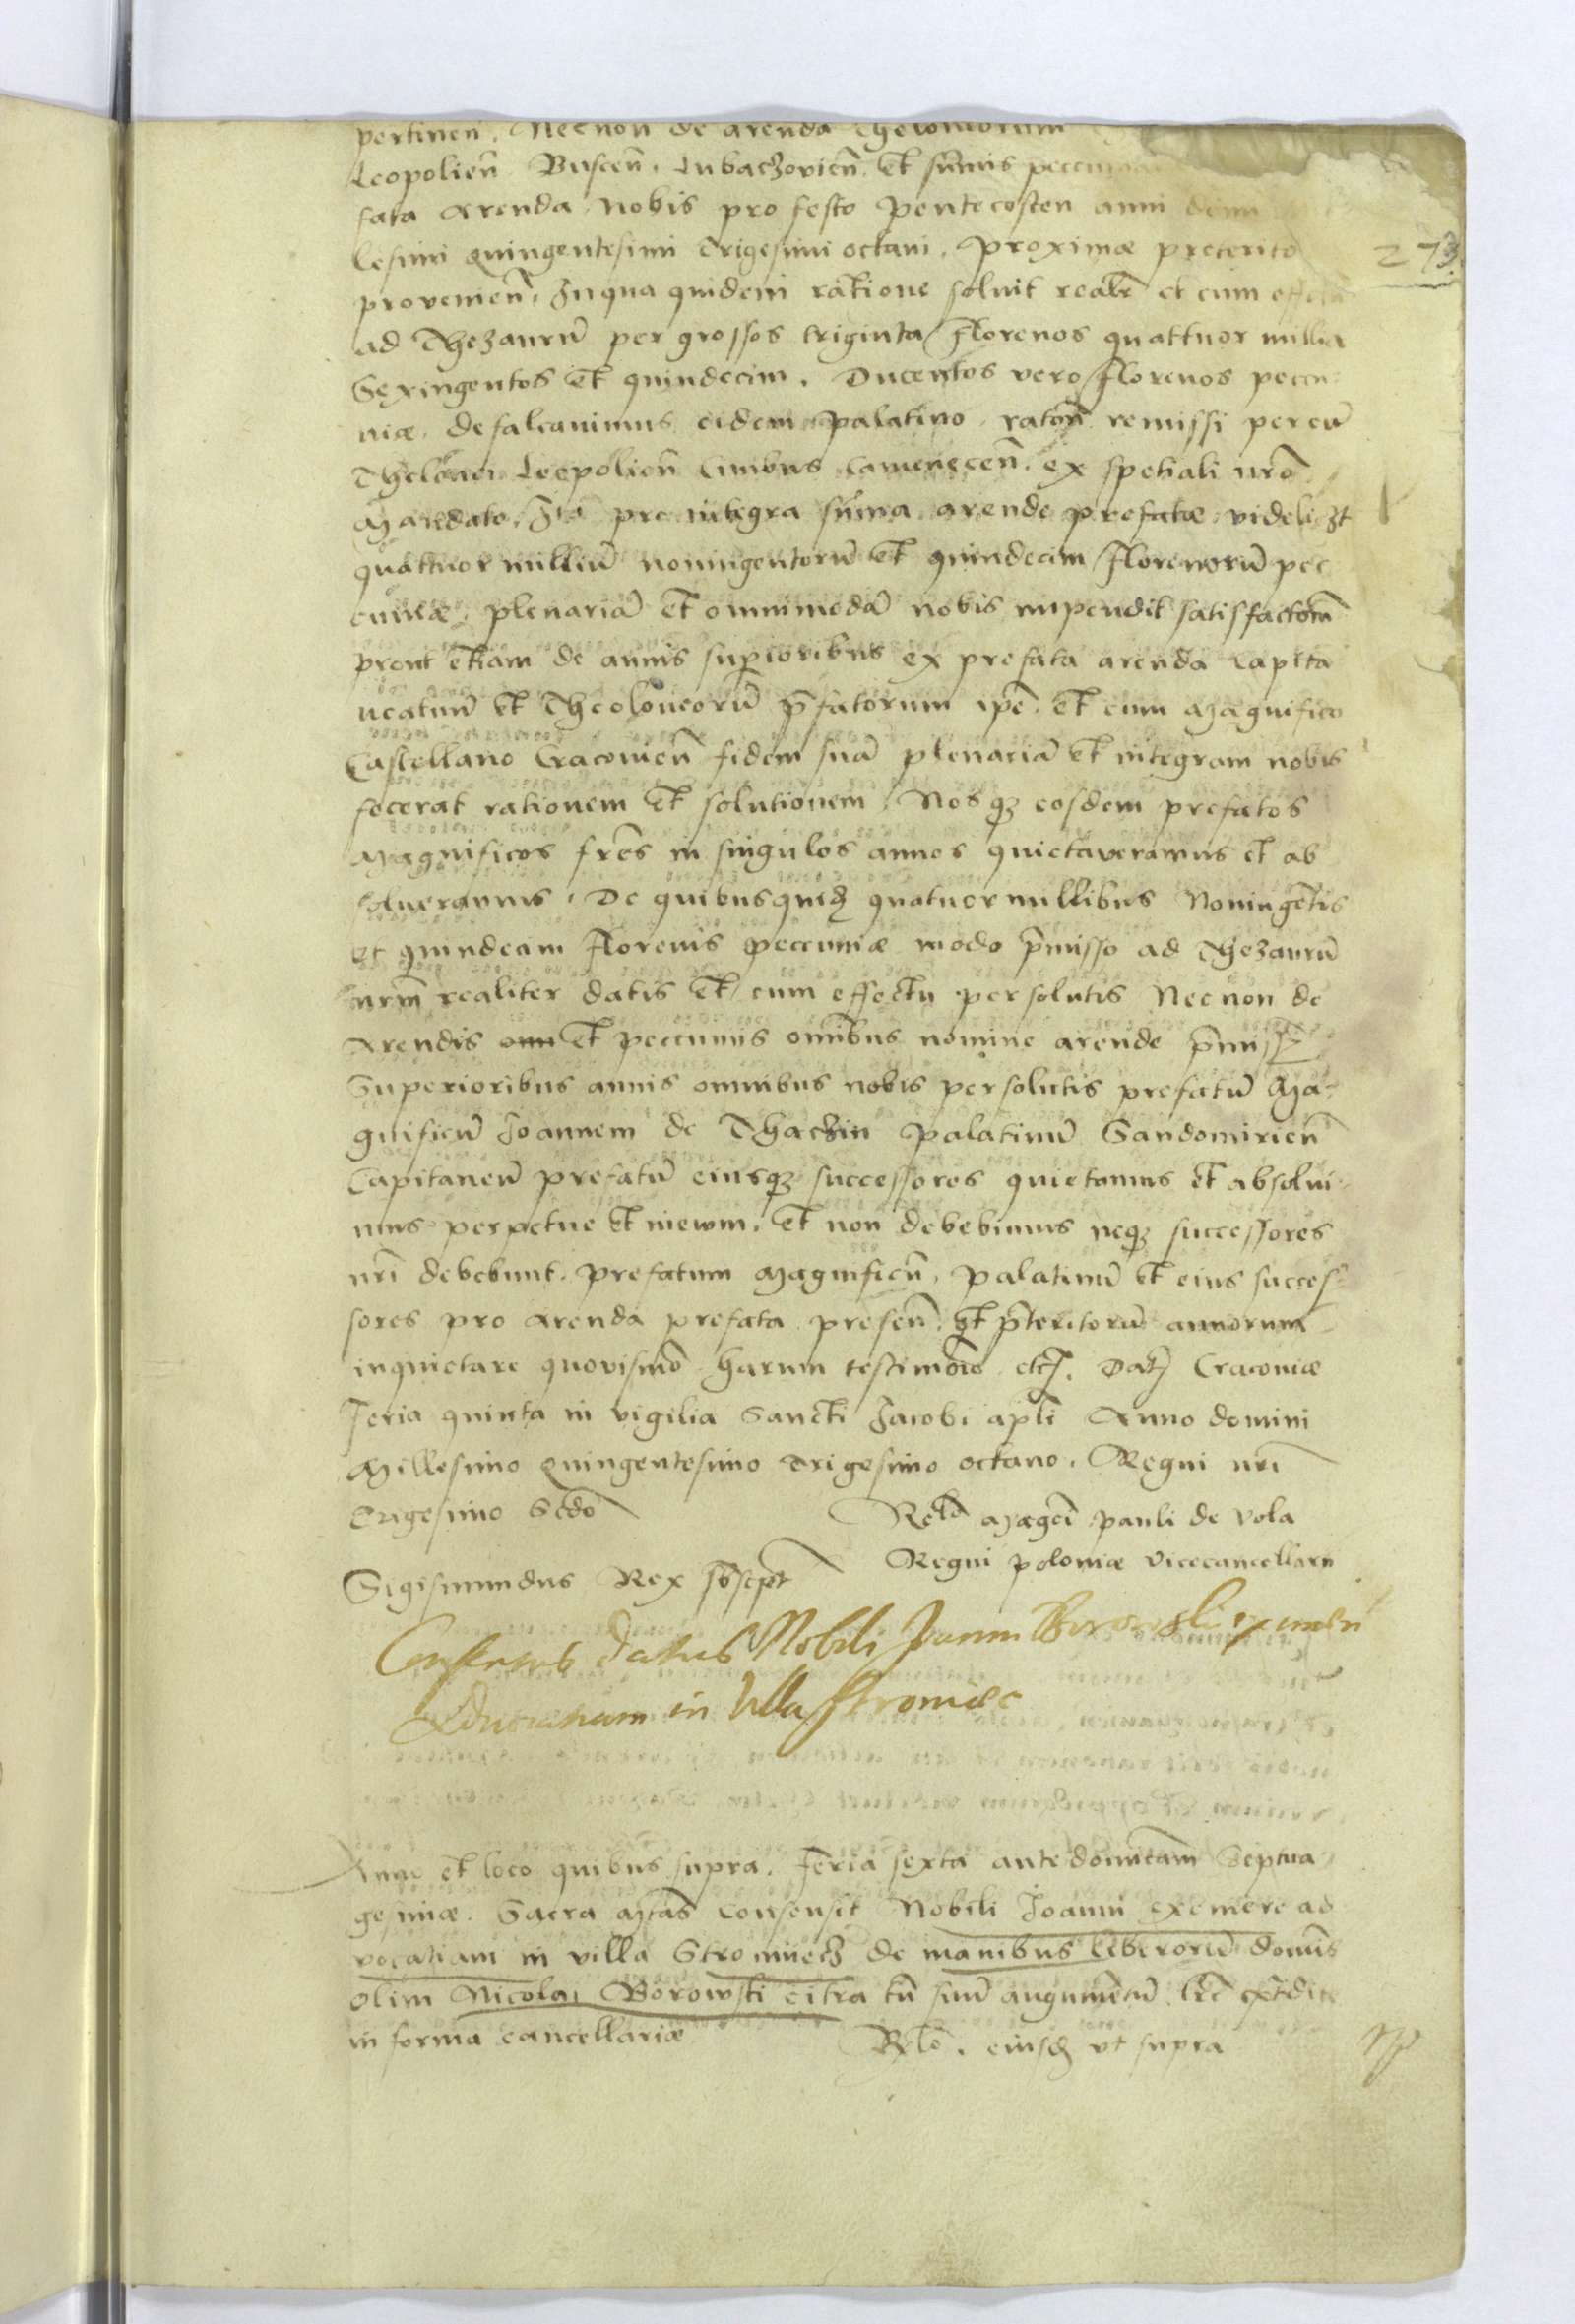 pertinen̄. Necnon de arenda Theloniorum
Leopolien̄ Buscen̄. Lubaczovien̄. et sum̄is peccuniar
fata Arenda nobis pro festo pentecosten anni domi
lesimi quingentesimi trigesimi octavi. proximæ preterito
provenien̄. In qua quidem ratione solvit realr̄ et cum effectu
ad Thezaurū per grossos triginta florenos quattuor millia
Sexingentos et quindecim. Ducentos vero florenos peccu=
niæ defalcavimus eidem palatino raton̄ remissi per eū
Thelonei Leopolien̄ Civibus Camenecen̄. ex spetiali nr̄o
Mandato. Itā pro integra sum̄a arende prefatæ videliczt
quattuor milliū noningentorū et quindecim florenorū pec
cuniæ plenariā et omnimodā nobis impendit satisfactoēm
prout etiam de annis superioribus ex prefata arenda Capita
neatuū et Theoloneorū p̄fatorum ipē. et cum Magnifico
Castellano Cracovien̄ fidem suā plenariā et integram nobis
fecerat rationem et solutionem. Nosqz eosdem prefatos
Magnificos fr̄es in singulos annos quietaveramus et ab
solveramus. De quibusquidz quatuor millibus Noningētis
et quindecim florenis peccuniæ modo p̄misso ad Thezaurū
nrm̄ realiter datis et cum effectu persolutis Necnon de
Arendis om̄ et peccuniis om̄ibus nomine arende p̄miss
Superioribus annis omnibus nobis persolutis prefatū Ma=
gnificū Joannem de Thaczin palatinū Sandomirien̄
Capitaneū prefatū eiusqz successores quietamus et absolvi
mus perpetue et in ewm. et non debebimus neqz successores
nr̄i debebunt. prefatum Magnificū. palatinū et eius succes=
sores pro Arenda prefata presen̄. et p̄teritorū annorum
inquietare quovismō. harum testimōīo etc. Datz Cracoviæ
feria quinta in vigilia Sancti Jacobi apl̄i Anno domini
Millesimo quingentesimo trigesimo octavo. Regni nr̄i
Trigesimo Scdō
Relō Maḡci pauli de Vola
Regni poloniæ Vicecancellarii
Sigismundus Rex sb̄scpt
Consensus datus Nobili Joanni Borowski eximendi
Advocatiam in Villa Stromiec
Anno et loco quibus supra. feria sexta ante dominicam Septua
gesimæ. Sacra Mtas consensit Nobili Joanni eximere ad
vocatiam in villa Stromiecz de manibus liberorū domīs
olim Nicolai Borowski citra tn̄ suū augumentū. lr̄e ext̄dite
in forma cancellariæ
Rlō. eiusdz ut supra
273